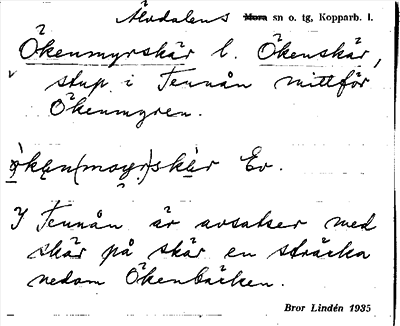 Älvdalens Mora sn o. tg, Kopparb. l.
Ökenmyrskär l. Ökenskär,
stup i Tennån mittför
Ökenmyren.
ö̀kẹn(moyr)skèr Ev.
I Tennån är avsatser med
skär på skär en sträcka
nedom Ökenbäcken.
Bror Lindén 1935